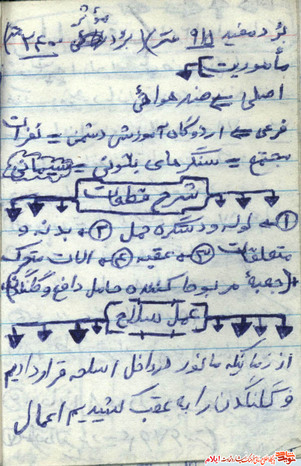 مؤثر
برد مفید ۹۱۱ متر) (برد ۲۴۰۰ متر)
مأموریت
اصلی = ضد هوائی
فرعی = اردوگاه آموزش دشمن = نفرات
مجتمع = سنگرهای بتونی =
شرح قطعات
۱ + لوله و دستگیره حمل ۲ + بدنه و
متعلقات ۳ + عقبه ۴ + آلات متحرک
+ (جعبهٔ مربوط کننده حامل دافع و گلنگدن)
عمل سلاح
از زمانیکه ما نوار در داخل اسلحه قرار دادیم
و گلنگدن را به عقب کشیدیم اعمال